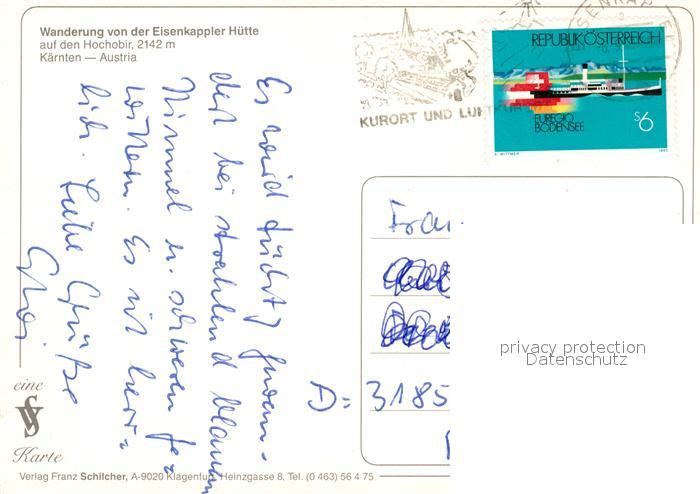 Wanderung von der Eisenkappler Hütte
auf den Hochobir, 2142 m
Kärnten — Austria
KURORT UND LUFT
REPUBLIK ÖSTERREICH
EUREGIO
BODENSEE
S6
1993
Es wird tüchtig gewan-
dert bei strahlend blauem
Himmel u. schweren Ge-
wittern. Es ist herr-
lich. Liebe Grüße
Frau
D-3185
privacy protection
Datenschutz
eine
Karte
Verlag Franz Schilcher, A-9020 Klagenfurt, Heinzgasse 8, Tel. (0 463) 56 4 75